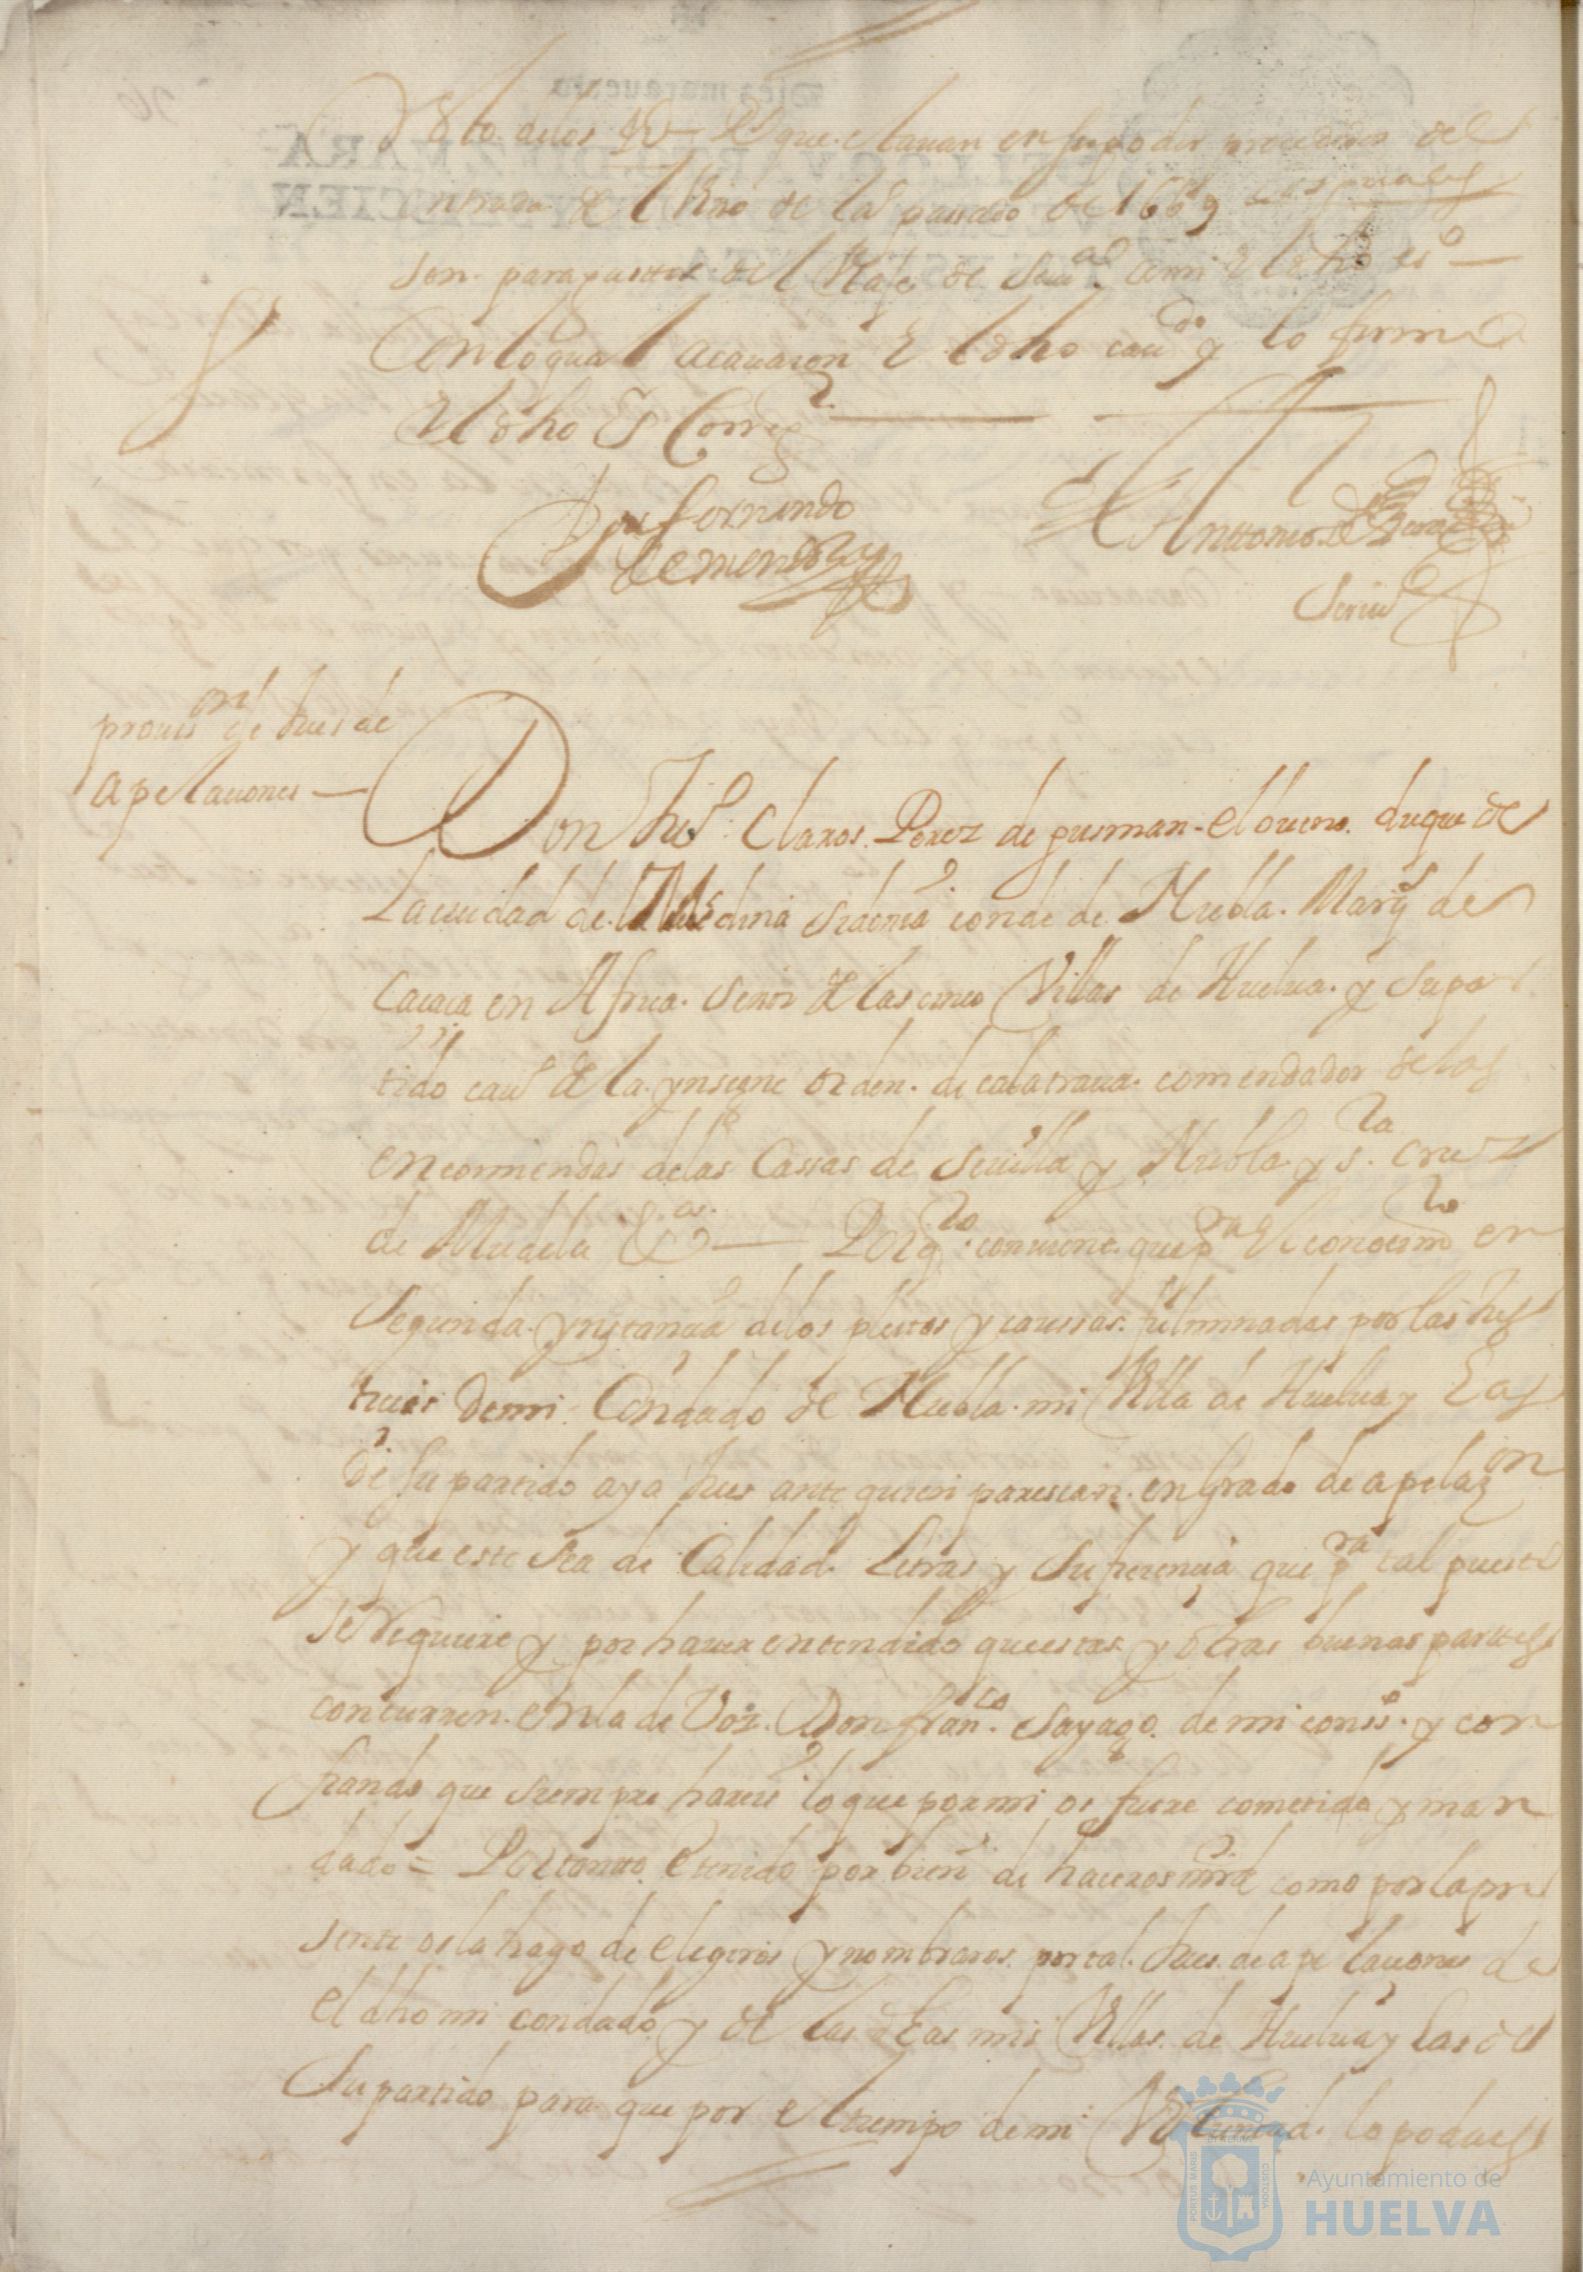 que estauan en su poder procedidos del
de 1669
son para gastos del viaje de
Con lo qual acauaron el dho caudo y lo firmo
el dho Sr Corregor
Don fernando
de mendoza
Anttonio de
Scriuo
prouision de Jues de
apelaciones —
Don Juo Claros Perez de gusman el bueno duque de
La ciudad de Medina sidonia conde de Niebla Marqs de
Cacaca en Africa señor de las cinco Villas de Huelua y su par
tido cauo de la ynsigne orden de calatraua comendador de las
encomiendas de las Cassas de Seuilla y Niebla y sta cruz
de Mudela &as — Por qto conuiene que pra el conocimto en
segunda ynstancia de los pleitos y caussas fulminadas por las Jus
ticias de mi Condado de Niebla mi Villa de Huelua y Las
de su partido aya Jues ante quien parescan en grado de apelazon
y que este sea de Calidad Letras y suficiencia que pra tal puesto
se Requiere y por hauer entendido que estas y otras buenas parttes
concurren en la de Vos Don franco Sayago de mi conso y con
fiando que siempre hareis lo que por mi os fuere cometido y man
dado = Por tanto E tenido por bien de haceros mrd como por la pre
sente os la hago de elegiros y nombraros por tal Jues de apelaciones de
el dho mi condado y de las mis Villas de Huelua y Las de
Su partido para que por el tiempo de mi Voluntad lo podais
Ayuntamiento de
HUELVA
PORTUS MARIS
CUSTODIA